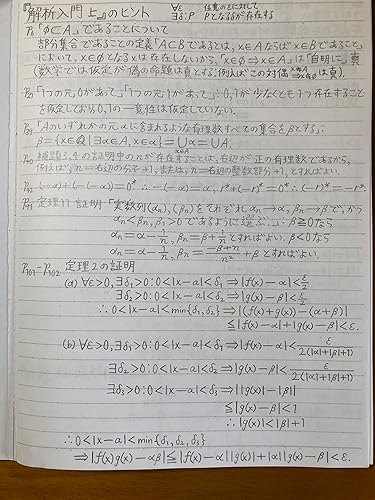 『解析入門 上』のヒント ∀ε 任意のεに対して
∃δ:P Pとなるδが存在する
「φ⊂A」であることについて
部分集合であることの定義「A⊂Bであるとは, x∈Aならばx∈Bであること」
において, x∈φとなるxは存在しないから,「x∈φ⇒x∈A」は「自明に」真
(数学では仮定が偽の命題は真とする; 例えばこの対偶 は真).
「1つの元, 0があって」「1つの元, 1があって」: 0, 1が少なくとも1つ存在すること
を仮定しており, 0, 1の一意性は仮定していない.
「Aのいずれかの元αに含まれるような有理数すべての集合をβとする」:
β={x∈Q|∃α∈A, x∈α}=∪α=∪A.
α∈A
補題3, 4の証明中のnが存在することは, 右辺が正の有理数であるから,
例えば, n=右辺の分子+1, または, n=右辺の整数部分+1, とすればよい.
-(-α)+(-α)=0* ∴-(-α)=α, r*+(-r)*=0* ∴(-r)*=-r*.
定理11 証明「実数列(αn), (βn)をそれぞれαn→α, βn→βで, かつ
αn<βn, βn>0であるように選ぶ.」: β≧0なら
αn=α-1/n, βn=β+1/nとすればよい. β<0なら
αn=α-1/n, とすればよい.
P101-P102 定理2の証明
(a) ∀ε>0, ∃δ1>0:0<|x-a|<δ1⇒|f(x)-α|<ε/2
∃δ2>0:0<|x-a|<δ2⇒|g(x)-β|<ε/2
∴0<|x-a|<min{δ1,δ2}⇒|(f(x)+g(x))-(α+β)|
≦|f(x)-α|+|g(x)-β|<ε.
(b) ∀ε>0, ∃δ1>0:0<|x-a|<δ1⇒|f(x)-α|<ε/2(|β|+1)
∃δ2>0:0<|x-a|<δ2⇒|g(x)-β|<ε/2(|α|+1)
∃δ3>0:0<|x-a|<δ3⇒||g(x)|-|β||
≦|g(x)-β|<1
∴|g(x)|<|β|+1
∴0<|x-a|<min{δ1,δ2,δ3}
⇒|f(x)g(x)-αβ|≦|f(x)-α||g(x)|+|α||g(x)-β|<ε.